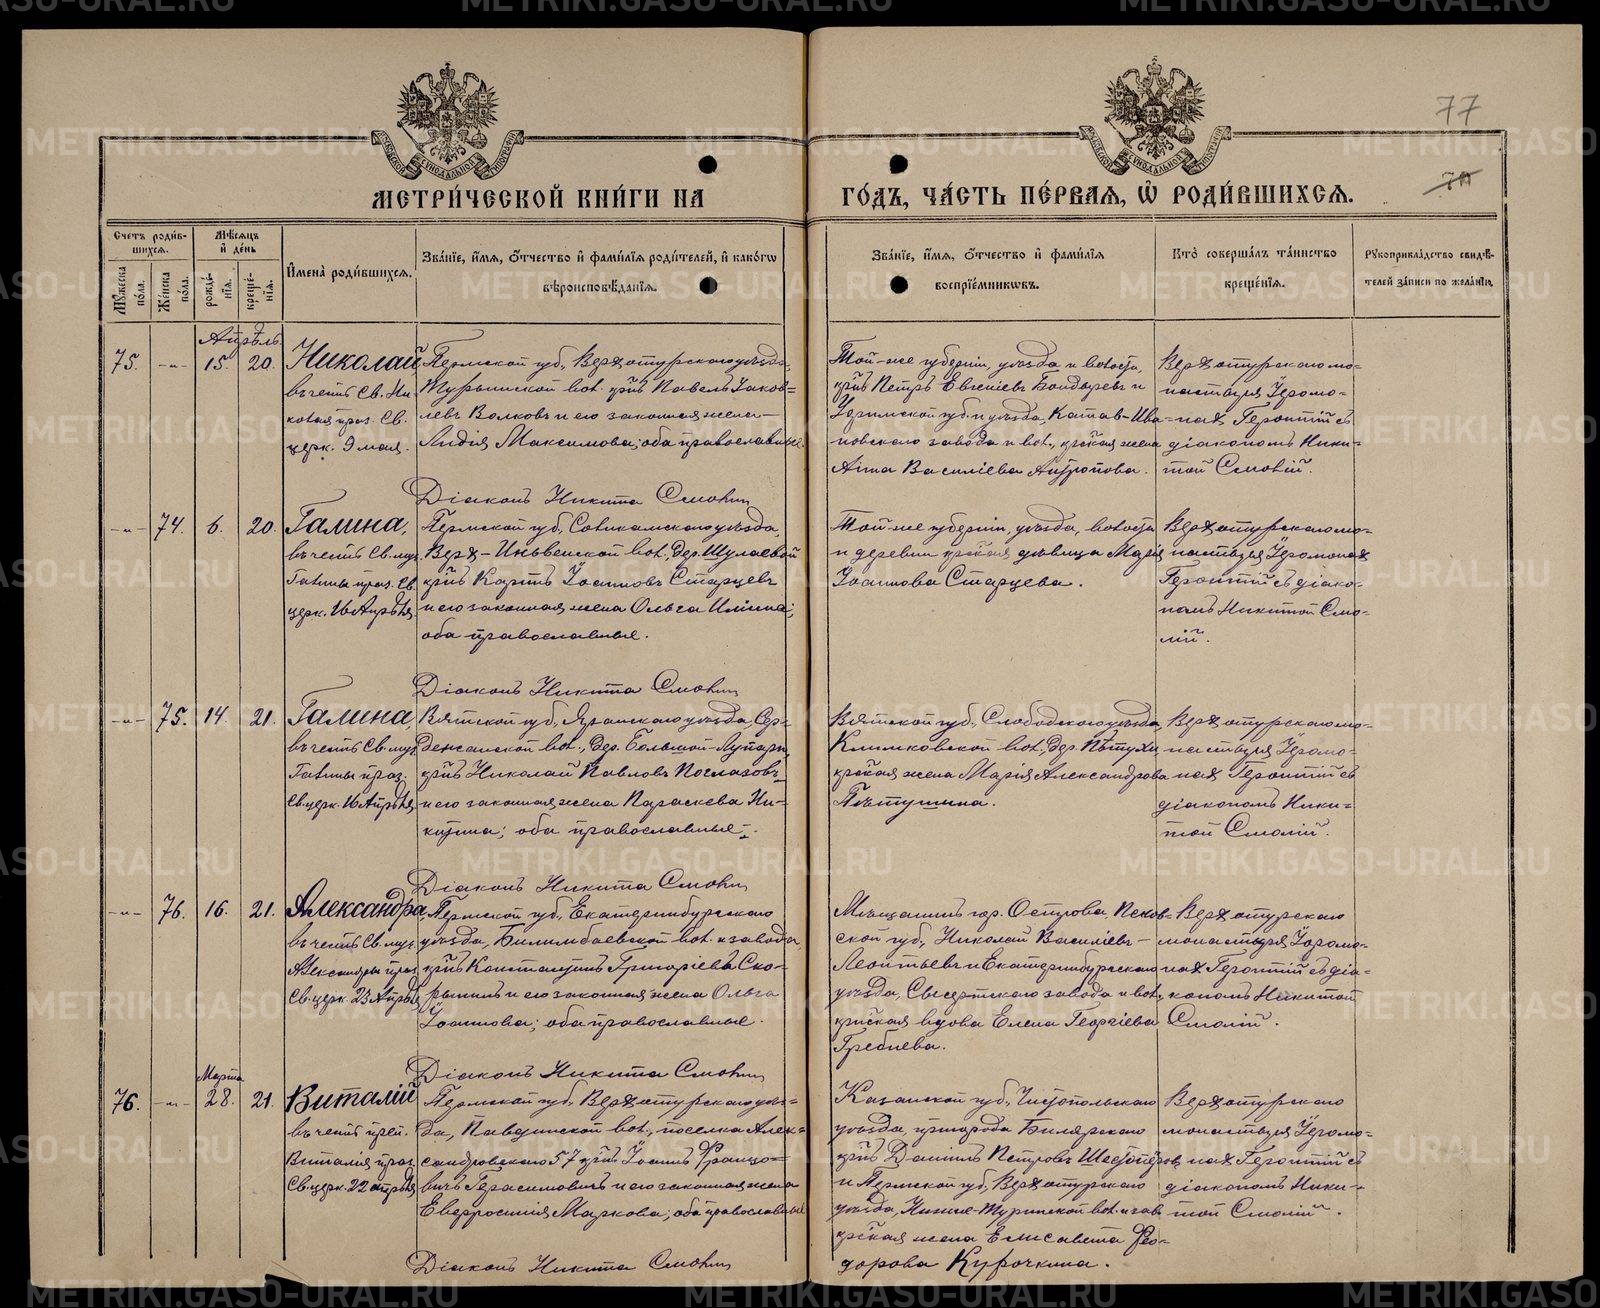 77
МЕТРИ́ЧЕСКОЙ КНИ́ГИ НА
ГО́ДЪ, ЧА́СТЬ ПЕ́РВАЯ, Ѿ РОДИ́ВШИХСЯ.
Счетъ роди́вшихся.
Мѣ́сяцъ и де́нь
Му́жеска по́ла.
Же́нска по́ла.
рожде́нїя.
креще́нїя.
Имена̀ роди́вшихся.
Зва́нїе, и́мя, о́тчество и фами́лїя роди́телей, и како́гѡ
вѣроисповѣ́данїя.
Зва́нїе, и́мя, о́тчество и фами́лїя
воспрїе́мникѡвъ.
Кто̀ соверша́лъ та́инство
креще́нїя.
Рукоприкла́дство свидѣ́телей за́писи по жела́нїю.
Апрѣль
75. -„- 15. 20.
Николай
въ честь Св. Николая праз. Св.
церк. 9 мая.
Пермской губ., Верхотурскаго уѣзда,
Турьинской вол. кр̃нъ Павелъ Яковлевъ Волковъ и его законная жена
Лидія Максимова; оба православные.
Той-же губерніи, уѣзда и волости,
кр̃нъ Петръ Евгеніевъ Бондыревъ и
Уфимской губ. и уѣзда, Катав-Ивановскаго завода и вол., кр̃ская жена
Анна Василіева Антропова.
Верхотурскаго монастыря Іеромонах Геронтій съ
діакономъ Никитой Смолій.
Діаконъ Никита Смолій
-„- 74. 6. 20.
Галина,
въ честь Св. муч.
Галины праз. Св.
церк. 16 Апрѣля
Пермской губ., Соликамскаго уѣзда,
Верх-Иньвенской вол., дер. Шулаевой
кр̃нъ Карпъ Іоанновъ Старцевъ
и его законная жена Ольга Иліина;
оба православные.
Той-же губерніи, уѣзда, волости
и деревни кр̃ская дѣвица Марія
Іоаннова Старцева.
Верхотурскаго монастыря Іеромонах
Геронтій съ діакономъ Никитой Смолій.
Діаконъ Никита Смолій
-„- 75. 14. 21.
Галина
въ честь Св. муч.
Галины праз.
Св. церк. 16 Апрѣля
Вятской губ., Яранскаго уѣзда, Сердежской вол., дер. Большой-Лупари,
кр̃нъ Николай Павловъ Поглазовъ
и его законная жена Параскева Никитина; оба православные.
Вятской губ., Слободскаго уѣзда,
Климковской вол., дер. Пѣтухи
кр̃ская жена Марія Александрова
Пѣтушина.
Верхотурскаго монастыря Іеромонах Геронтій съ
діакономъ Никитой Смолій.
Діаконъ Никита Смолій
-„- 76. 16. 21.
Александра
въ честь Св. муч.
Александры праз.
Св. церк. 23 Апрѣля
Пермской губ., Екатеринбургскаго
уѣзда, Билимбаевской вол. и завода,
кр̃нъ Константинъ Григоріевъ Скорынинъ и его законная жена Ольга
Іоаннова; оба православные.
Мѣщанинъ гор. Острова, Псковской губ., Николай Василіевъ
Леонтьевъ и Екатеринбургскаго
уѣзда, Сысертскаго завода и вол.,
кр̃нская вдова Елена Георгіева
Гребнева.
Верхотурскаго
монастыря Іеромонах Геронтій съ діакономъ Никитой
Смолій.
Діаконъ Никита Смолій
Марта
76. -„- 28. 21.
Виталій
въ честь преп.
Виталія праз.
Св. церк. 22 апрѣля
Пермской губ., Верхотурскаго уѣзда, Павдинской вол., поселка Александровскаго 57 кр̃нъ Іоаннъ Францовичъ Герасимовичъ и его законная жена
Евфросинія Маркова; оба православные
Казанской губ., Чистопольскаго
уѣзда, пригорода Билярскаго
кр̃нъ Даніилъ Петровъ Шестоперов
и Пермской губ., Верхотурскаго
уѣзда, Нижне-Туринской вол. и зав.
кр̃ская жена Елисавета Феодорова Курочкина.
Верхотурскаго
монастыря Іеромонах Геронтій съ
діакономъ Никитой Смолій.
Діаконъ Никита Смолій
METRIKI.GASO-URAL.RU